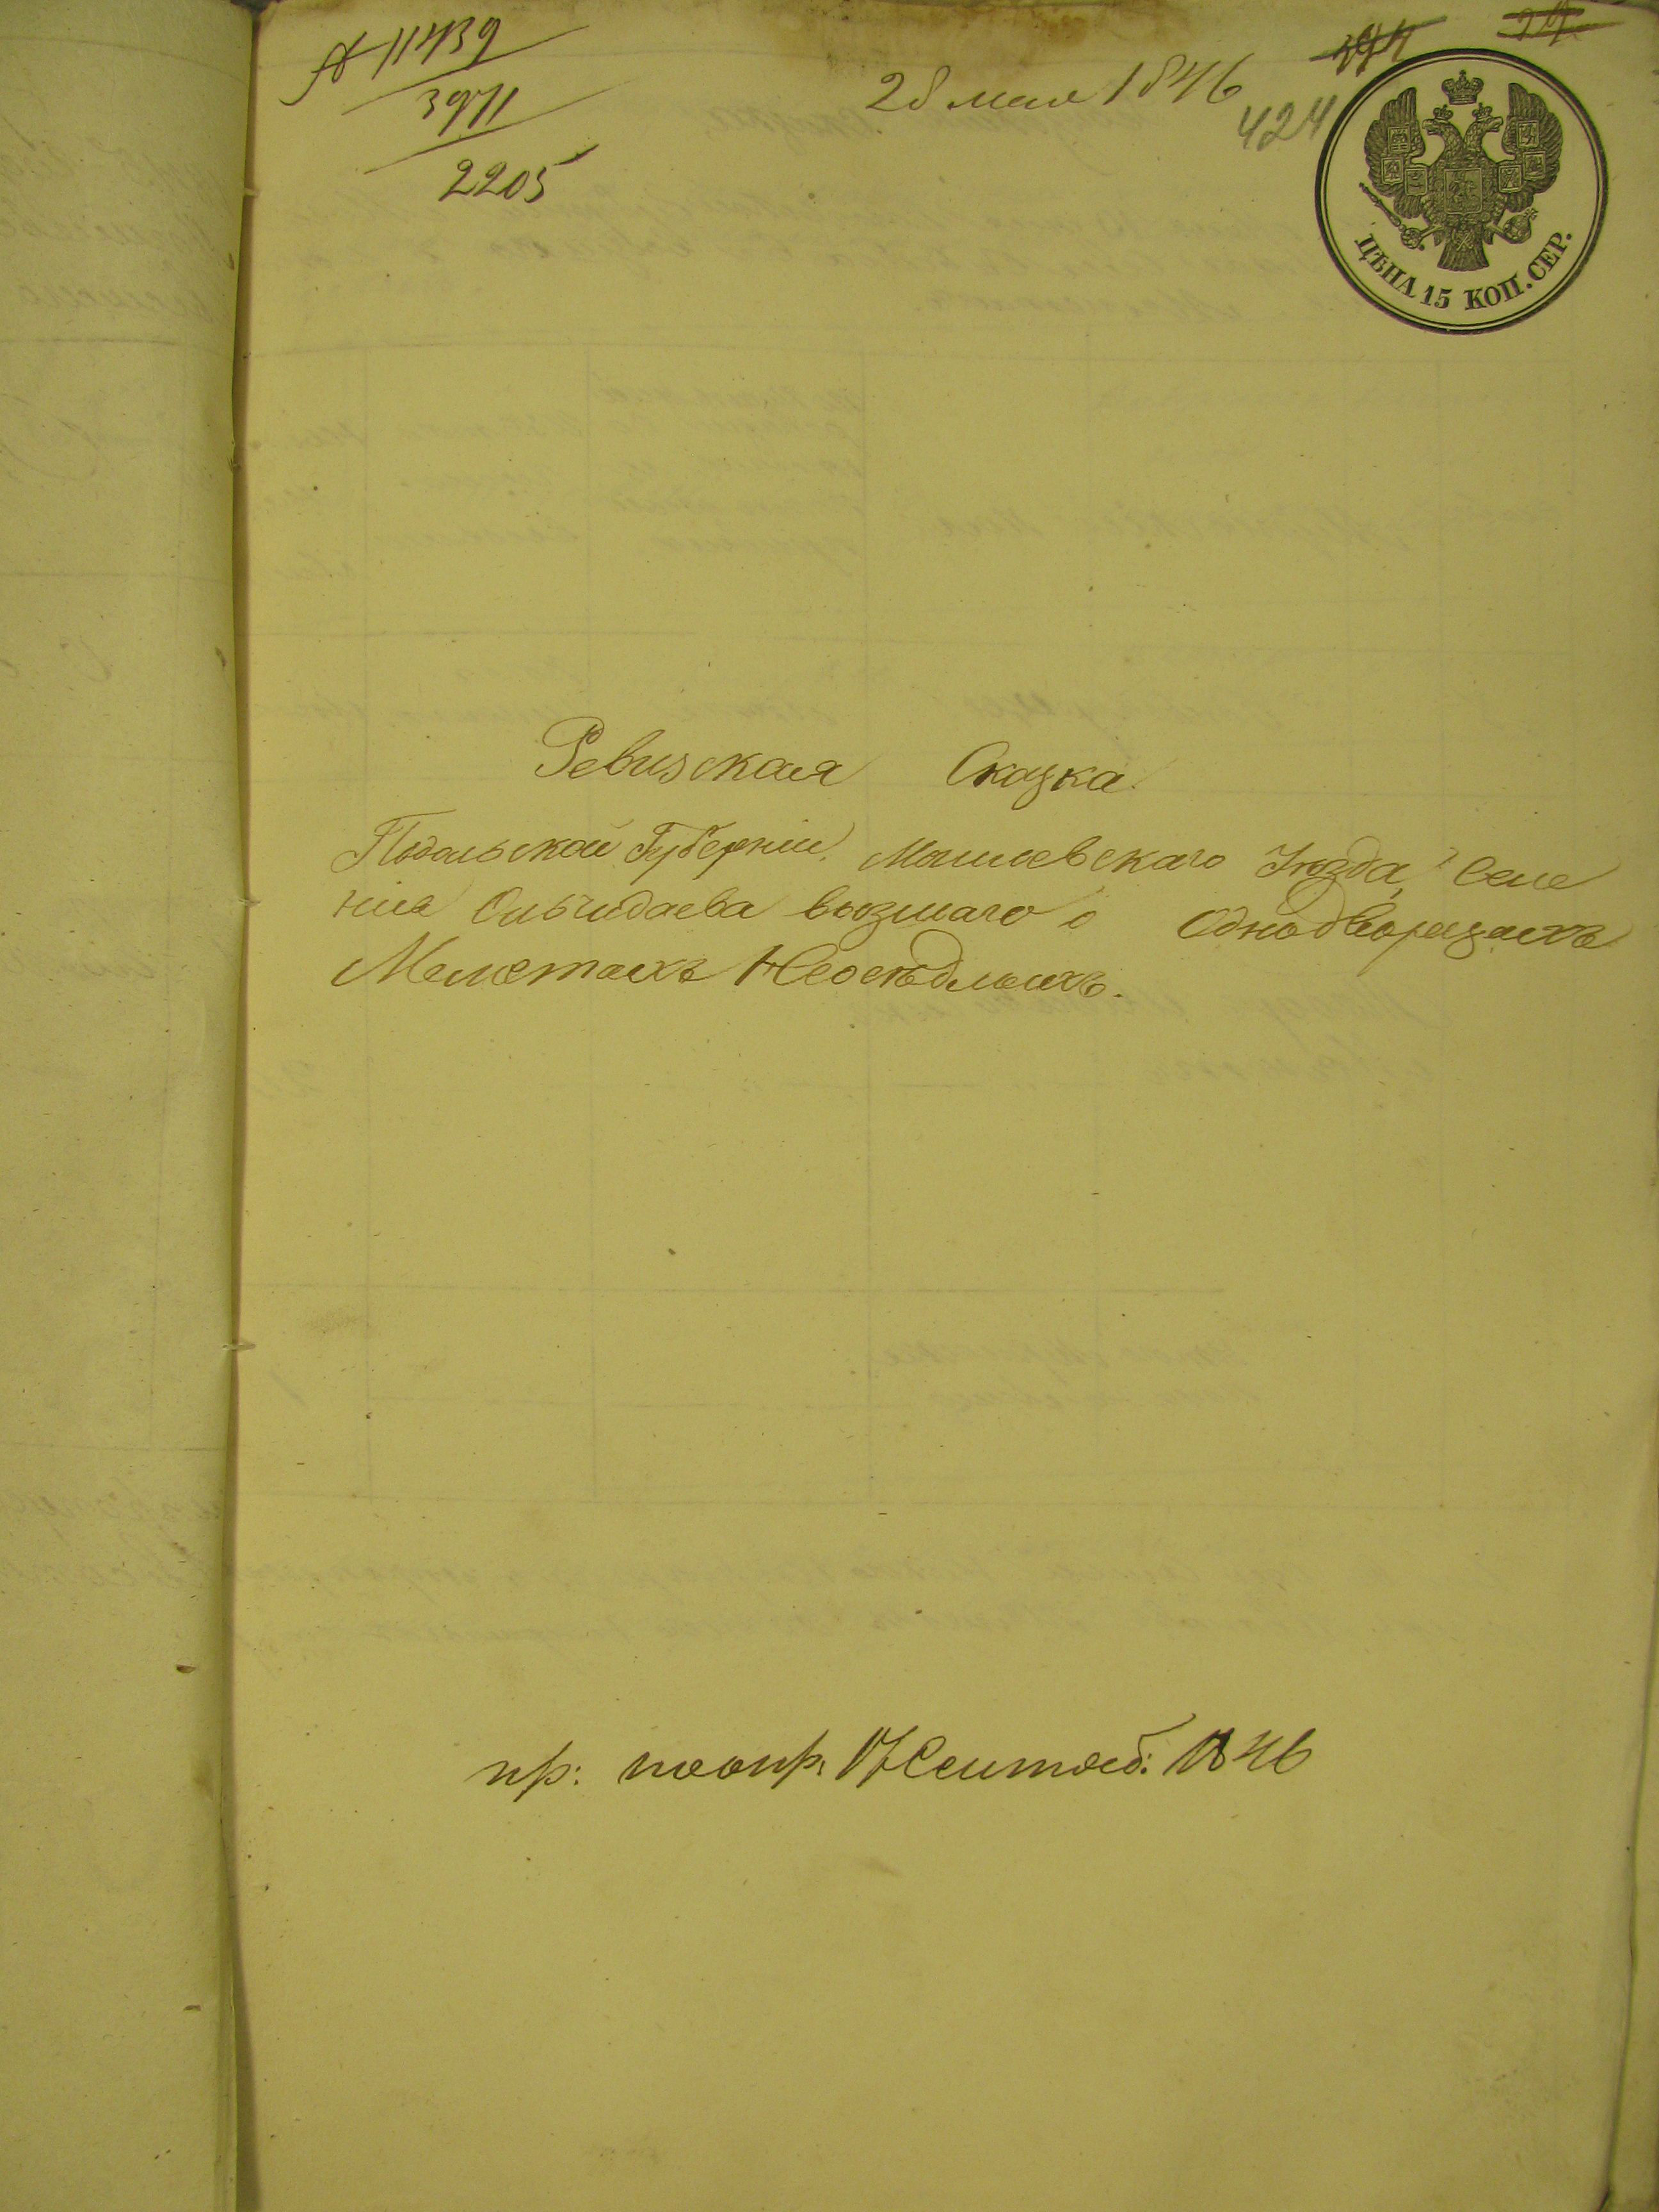 № 11439
3971
2205
28 мая 1846
424
ЦѢНА 15 КОП. СЕР.
Ревизская Сказка
Подольской Губерніи, Могилевскаго Уѣзда, Селе
нія Ольчидаева вызшаго о Однодворцахъ
Неосѣдлыхъ.
пр: 17 Сентяб: 1846